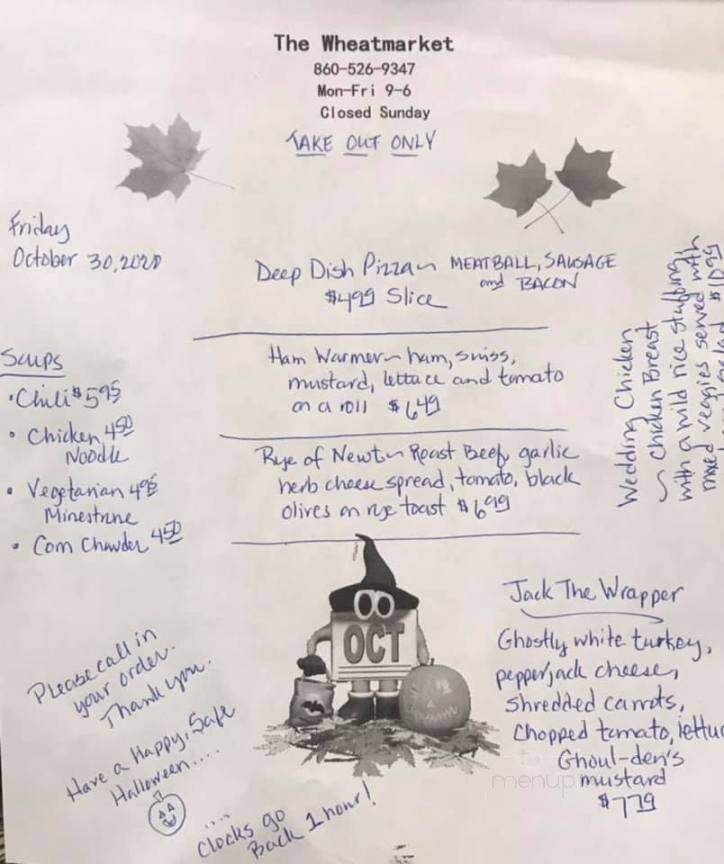 The Wheatmarket
860-526-9347
Mon-Fri 9-6
Closed Sunday
TAKE OUT ONLY
Friday
October 30, 2020
Deep Dish Pizza ~ MEATBALL, SAUSAGE
and BACON
$4.99 Slice
Ham Warmer ~ ham, swiss,
mustard, lettuce and tomato
on a roll $6.49
Rye of Newt ~ Roast Beef, garlic
herb cheese spread, tomato, black
olives on rye toast $6.99
Soups
• Chili $5.95
• Chicken 4.50
Noodle
• Vegetarian 4.95
Minestrone
• Corn Chowder 4.50
Wedding Chicken
~ Chicken Breast
with a wild rice stuffing,
mixed veggies served with
$10.99
OCT
Jack The Wrapper
Ghostly white turkey,
pepperjack cheese,
shredded carrots,
Chopped tomato, lettuc
Ghoul-den's
mustard
$7.79
Please call in
your order.
Thank you.
Have a Happy, Safe
Halloween....
.... Clocks go
Back 1 hour!
menup